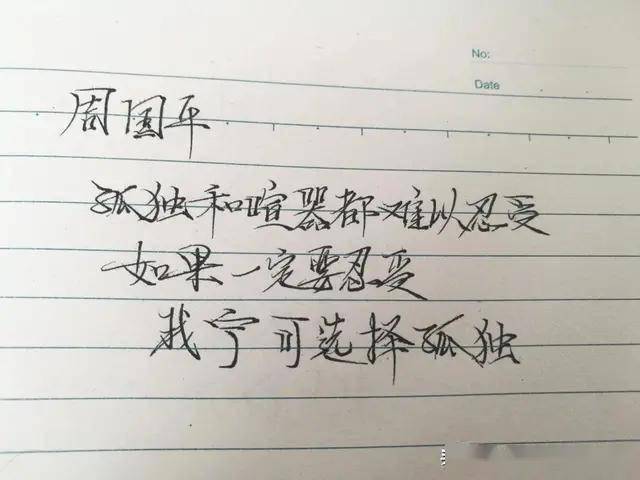 No:
Date
周国平
孤独和喧器都难以忍受
如果一定要忍受
我宁可选择孤独